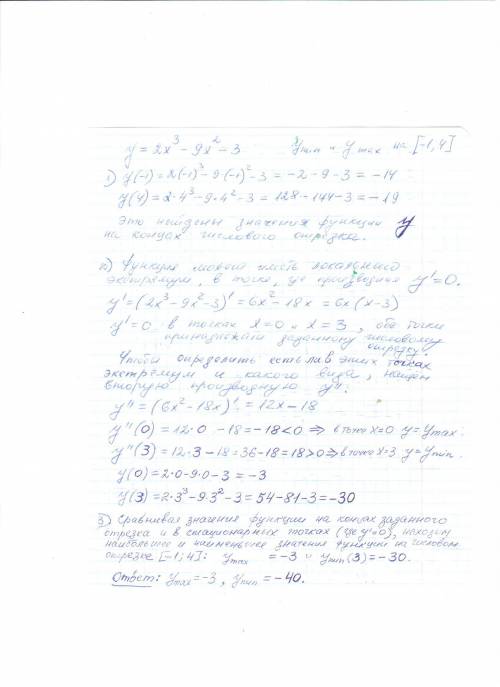 y = 2x³ - 9x² - 3 yнаим и ymax на [-1,4]
1) y(-1) = 2(-1)³ - 9·(-1)² - 3 = -2 - 9 - 3 = -14
y(4) = 2·4³ - 9·4² - 3 = 128 - 144 - 3 = -19
Это найдены значения функции y
на концах числового отрезка.
2) Функция может иметь локальный
экстремум, в точке, где производная y' = 0.
y' = (2x³ - 9x² - 3)' = 6x² - 18x = 6x(x - 3)
y' = 0 в точках x = 0 и x = 3, обе точки
принадлежат заданному числовому
отрезку.
Чтобы определить есть ли в этих точках
экстремум и какого вида, найдем
вторую производную y''.
y'' = (6x² - 18x)' = 12x - 18
y''(0) = 12·0 - 18 = -18 < 0 ⇒ в точке x=0 y = ymax.
y''(3) = 12·3 - 18 = 36 - 18 = 18 > 0 ⇒ в точке x=3 y = ymin.
y(0) = 2·0 - 9·0 - 3 = -3
y(3) = 2·3³ - 9·3² - 3 = 54 - 81 - 3 = -30
3) Сравнивая значения функции на концах заданного
отрезка и в стационарных точках (где y'=0), находим
наибольшее и наименьшее значения функции на числовом
отрезке [-1; 4]: ymax = -3 и ymin(3) = -30.
Ответ: ymax = -3, ymin = -40.